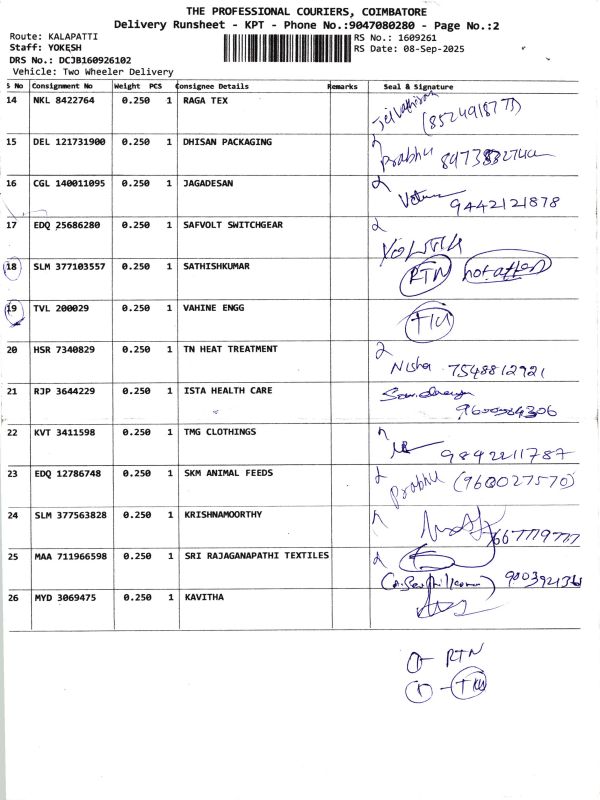 THE PROFESSIONAL COURIERS, COIMBATORE
Delivery Runsheet - KPT - Phone No.:9047080280 - Page No.:2
Route: KALAPATTI
RS No.: 1609261
Staff: YOKESH
RS Date: 08-Sep-2025
DRS No.: DCJB160926102
Vehicle: Two Wheeler Delivery
S No Consignment No Weight PCS Consignee Details Remarks Seal & Signature
14 NKL 8422764 0.250 1 RAGA TEX
15 DEL 121731900 0.250 1 DHISAN PACKAGING Prabhu
16 CGL 140011095 0.250 1 JAGADESAN 9442121878
17 EDQ 25686280 0.250 1 SAFVOLT SWITCHGEAR
18 SLM 377103557 0.250 1 SATHISHKUMAR RTN
19 TVL 200029 0.250 1 VAHINE ENGG
20 HSR 7340829 0.250 1 TN HEAT TREATMENT Nisha 7548812921
21 RJP 3644229 0.250 1 ISTA HEALTH CARE
22 KVT 3411598 0.250 1 TMG CLOTHINGS 9842211787
23 EDQ 12786748 0.250 1 SKM ANIMAL FEEDS Prabhu (9600027570)
24 SLM 377563828 0.250 1 KRISHNAMOORTHY
25 MAA 711966598 0.250 1 SRI RAJAGANAPATHI TEXTILES
26 MYD 3069475 0.250 1 KAVITHA
1- RTN